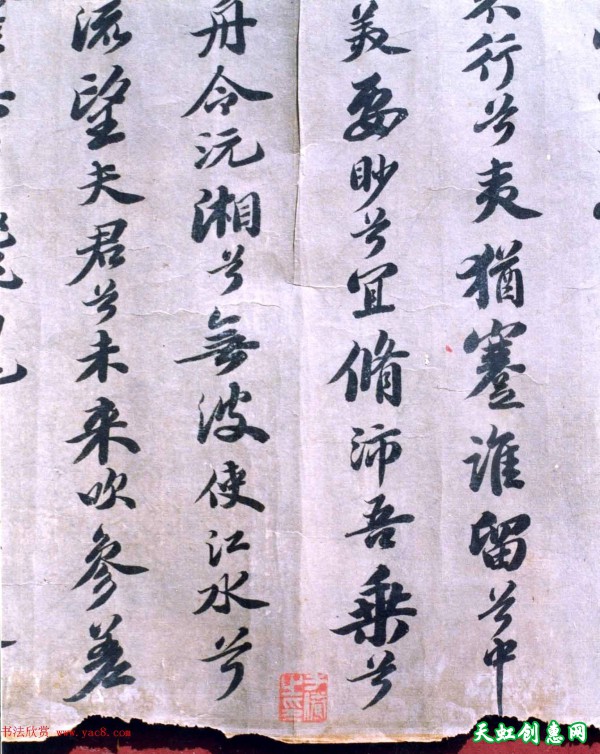 不行兮夷猶蹇誰留兮中
美要眇兮宜脩沛吾乗兮
舟令沅湘兮無波使江水兮
流望夫君兮未来吹參差
书法欣赏 www.yac8.com
天虹创惠网